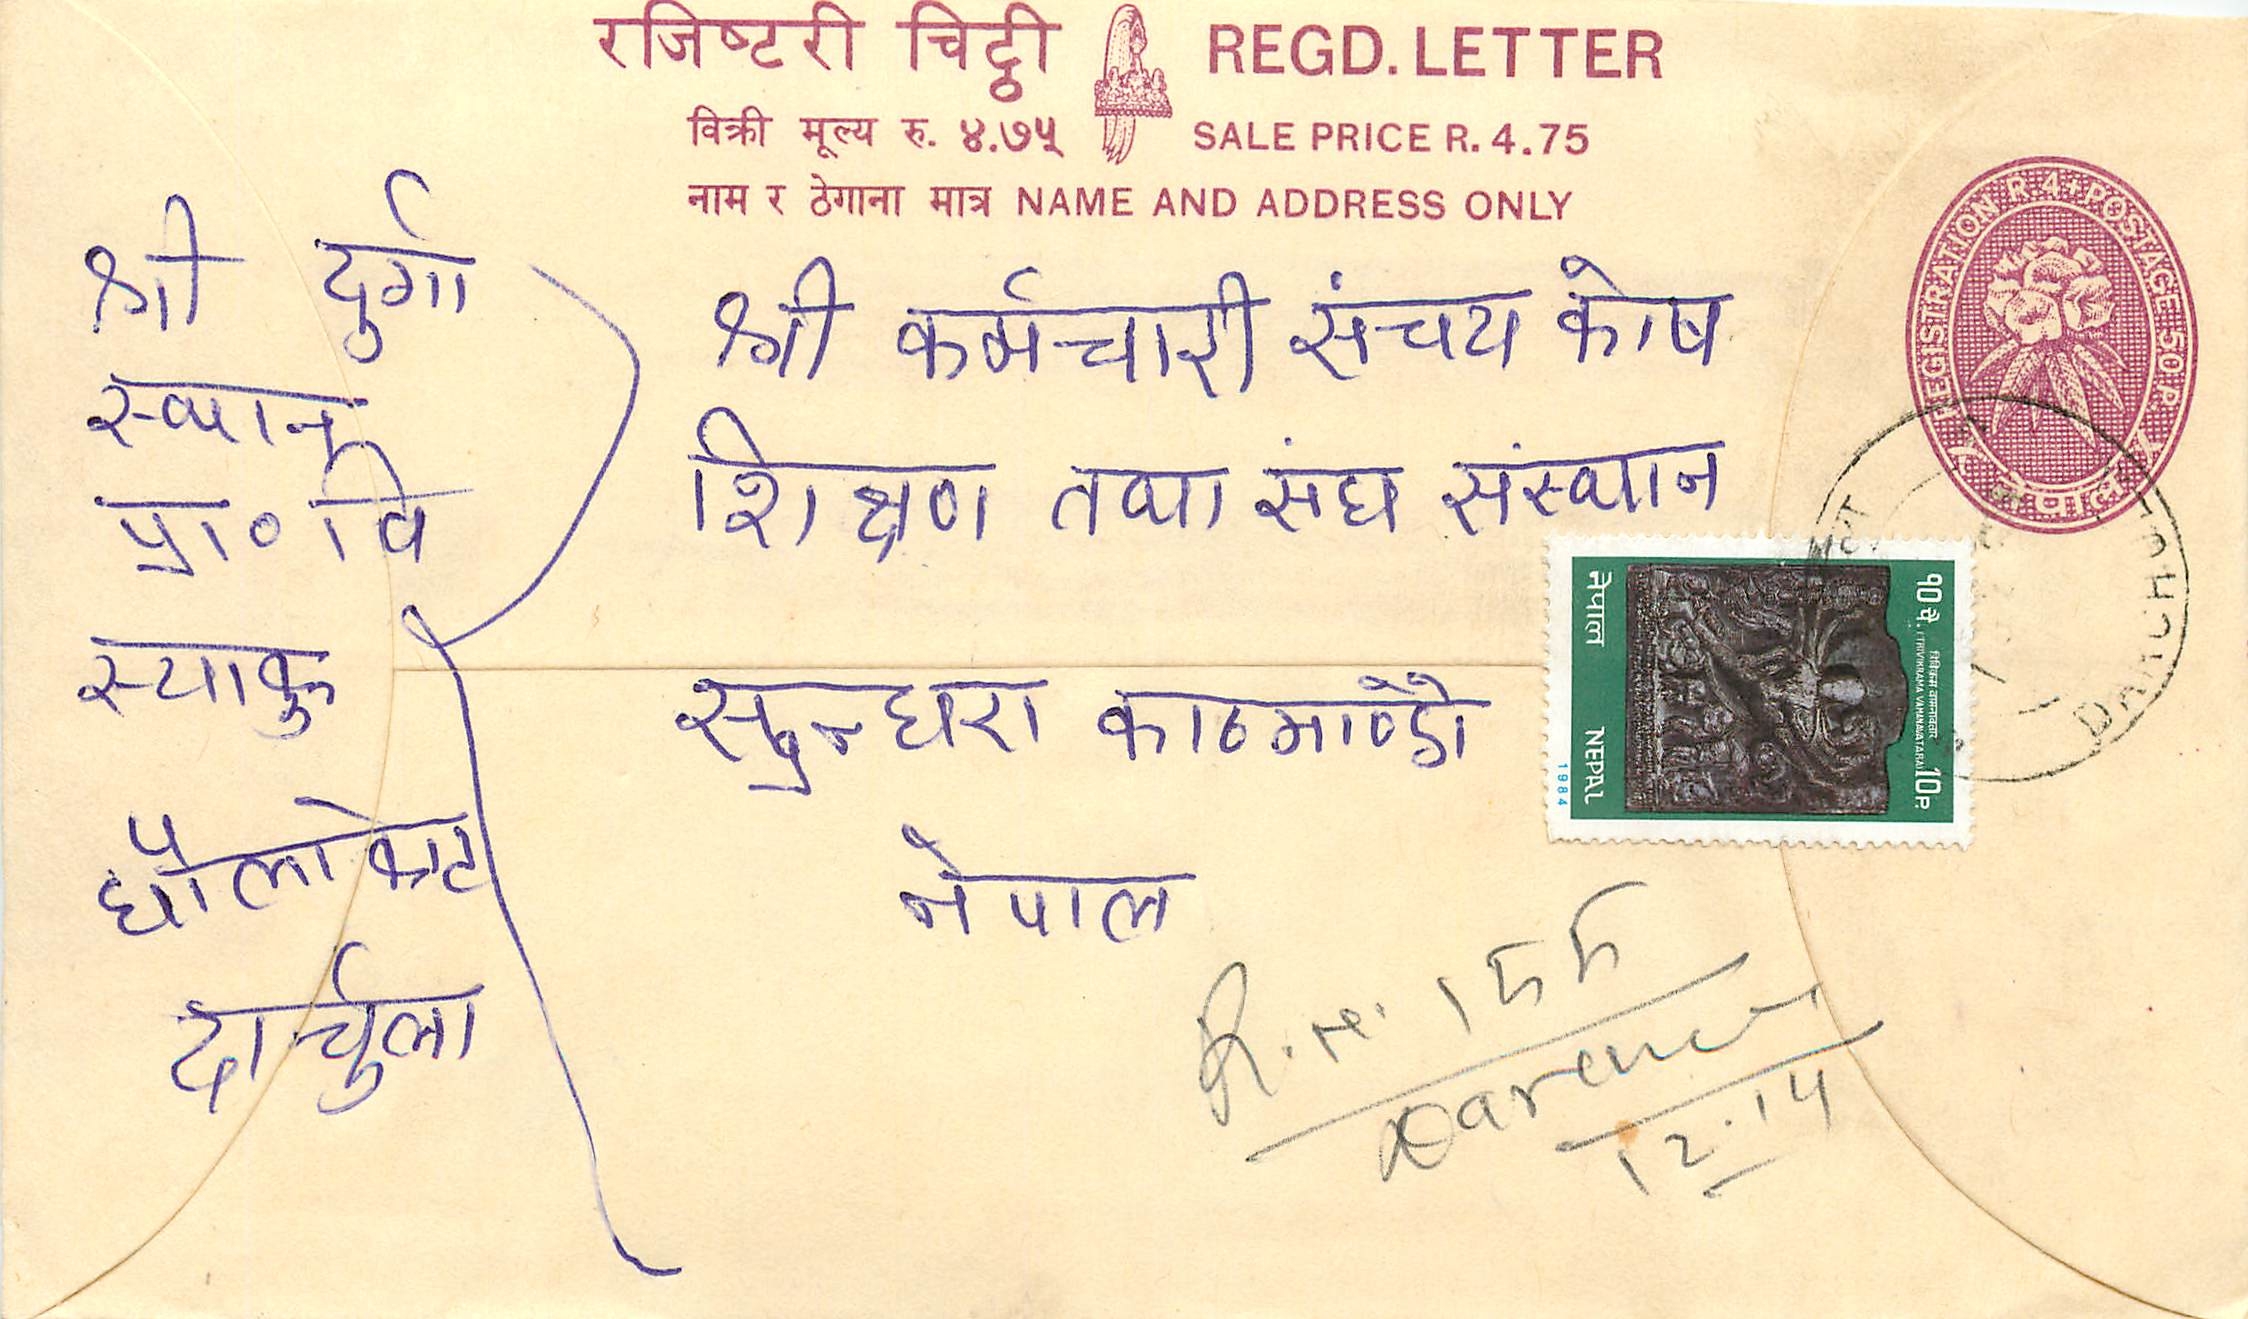 रजिष्टरी चिट्ठी REGD. LETTER
विक्री मूल्य रु. ४.७५ SALE PRICE R. 4.75
नाम र ठेगाना मात्र NAME AND ADDRESS ONLY
REGISTRATION R.4+POSTAGE 50 P.
नेपाल
श्री दुर्गा
स्थान
प्रा०वि
स्याकु
धौलाकोट
दार्चुला
श्री कर्मचारी संचय कोष
शिक्षण तथा संघ संस्थान
सुन्धारा काठमाण्डौ
नेपाल
१० पै. त्रिविक्रम वामनावतार (TRIVIKRAMA VAMANAVATARA) 10 P.
नेपाल NEPAL
1984
DARCHULA
R. no.
12.14